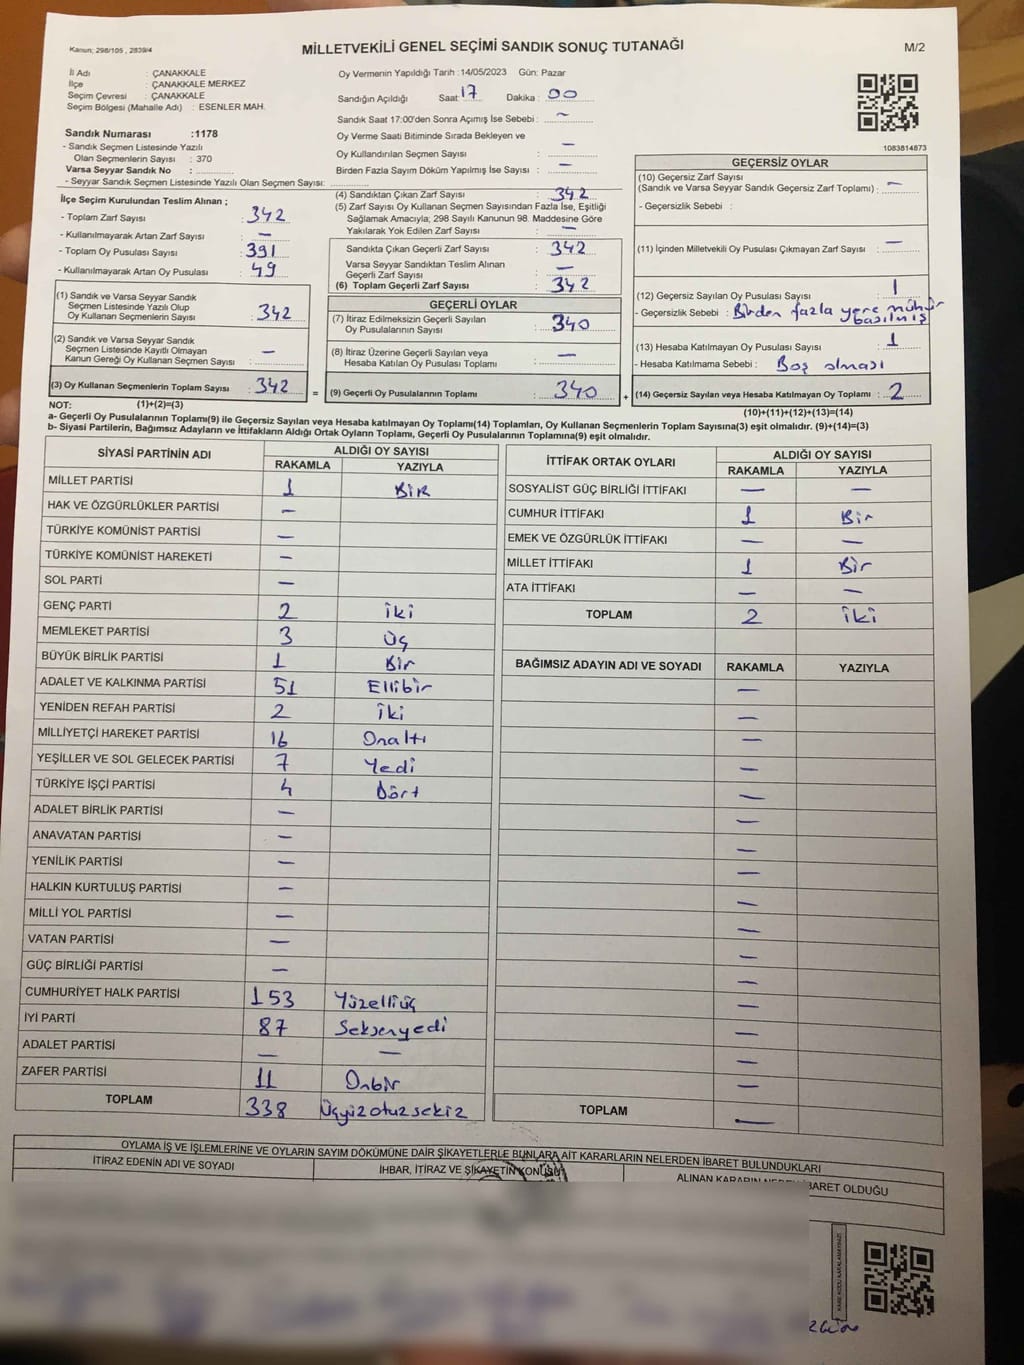 Kanun; 298/105 , 2839/4
MİLLETVEKİLİ GENEL SEÇİMİ SANDIK SONUÇ TUTANAĞI
M/2
İl Adı : ÇANAKKALE
İlçe : ÇANAKKALE MERKEZ
Seçim Çevresi : ÇANAKKALE
Seçim Bölgesi (Mahalle Adı) : ESENLER MAH.
Sandık Numarası :1178
- Sandık Seçmen Listesinde Yazılı
Olan Seçmenlerin Sayısı : 370
Varsa Seyyar Sandık No :
- Seyyar Sandık Seçmen Listesinde Yazılı Olan Seçmen Sayısı:
Oy Vermenin Yapıldığı Tarih :14/05/2023 Gün: Pazar
Sandığın Açıldığı Saat: 17 Dakika : 00
Sandık Saat 17:00'den Sonra Açımış İse Sebebi : ~
Oy Verme Saati Bitiminde Sırada Bekleyen ve
Oy Kullandırılan Seçmen Sayısı : —
Birden Fazla Sayım Döküm Yapılmış İse Sayısı : —
1083814873
İlçe Seçim Kurulundan Teslim Alınan ;
- Toplam Zarf Sayısı : 342
- Kullanılmayarak Artan Zarf Sayısı : —
- Toplam Oy Pusulası Sayısı : 391
- Kullanılmayarak Artan Oy Pusulası : 49
(1) Sandık ve Varsa Seyyar Sandık
Seçmen Listesinde Yazılı Olup
Oy Kullanan Seçmenlerin Sayısı : 342
(2) Sandık ve Varsa Seyyar Sandık
Seçmen Listesinde Kayıtlı Olmayan
Kanun Gereği Oy Kullanan Seçmen Sayısı : —
(3) Oy Kullanan Seçmenlerin Toplam Sayısı : 342 =
(4) Sandıktan Çıkan Zarf Sayısı : 342
(5) Zarf Sayısı Oy Kullanan Seçmen Sayısından Fazla İse, Eşitliği
Sağlamak Amacıyla; 298 Sayılı Kanunun 98. Maddesine Göre
Yakılarak Yok Edilen Zarf Sayısı : —
Sandıkta Çıkan Geçerli Zarf Sayısı : 342
Varsa Seyyar Sandıktan Teslim Alınan
Geçerli Zarf Sayısı : —
(6) Toplam Geçerli Zarf Sayısı : 342
GEÇERLİ OYLAR
(7) İtiraz Edilmeksizin Geçerli Sayılan
Oy Pusulalarının Sayısı : 340
(8) İtiraz Üzerine Geçerli Sayılan veya
Hesaba Katılan Oy Pusulası Toplamı : —
(9) Geçerli Oy Pusulalarının Toplamı : 340 +
GEÇERSİZ OYLAR
(10) Geçersiz Zarf Sayısı
(Sandık ve Varsa Seyyar Sandık Geçersiz Zarf Toplamı) : —
- Geçersizlik Sebebi :
(11) İçinden Milletvekili Oy Pusulası Çıkmayan Zarf Sayısı : —
(12) Geçersiz Sayılan Oy Pusulası Sayısı : 1
- Geçersizlik Sebebi : Birden fazla yere mühür
basılmış
(13) Hesaba Katılmayan Oy Pusulası Sayısı : 1
- Hesaba Katılmama Sebebi : Boş olması
(14) Geçersiz Sayılan veya Hesaba Katılmayan Oy Toplamı : 2
NOT: (1)+(2)=(3)
(10)+(11)+(12)+(13)=(14)
a- Geçerli Oy Pusulalarının Toplamı(9) ile Geçersiz Sayılan veya Hesaba katılmayan Oy Toplamı(14) Toplamları, Oy Kullanan Seçmenlerin Toplam Sayısına(3) eşit olmalıdır. (9)+(14)=(3)
b- Siyasi Partilerin, Bağımsız Adayların ve İttifakların Aldığı Ortak Oyların Toplamı, Geçerli Oy Pusulalarının Toplamına(9) eşit olmalıdır.
SİYASİ PARTİNİN ADI ALDIĞI OY SAYISI
RAKAMLA YAZIYLA
MİLLET PARTİSİ 1 BİR
HAK VE ÖZGÜRLÜKLER PARTİSİ —
TÜRKİYE KOMÜNİST PARTİSİ —
TÜRKİYE KOMÜNİST HAREKETİ —
SOL PARTİ —
GENÇ PARTİ 2 iki
MEMLEKET PARTİSİ 3 üç
BÜYÜK BİRLİK PARTİSİ 1 Bir
ADALET VE KALKINMA PARTİSİ 51 Ellibir
YENİDEN REFAH PARTİSİ 2 iki
MİLLİYETÇİ HAREKET PARTİSİ 16 Onaltı
YEŞİLLER VE SOL GELECEK PARTİSİ 7 Yedi
TÜRKİYE İŞÇİ PARTİSİ 4 Dört
ADALET BİRLİK PARTİSİ —
ANAVATAN PARTİSİ —
YENİLİK PARTİSİ —
HALKIN KURTULUŞ PARTİSİ —
MİLLİ YOL PARTİSİ —
VATAN PARTİSİ —
GÜÇ BİRLİĞİ PARTİSİ —
CUMHURİYET HALK PARTİSİ 153 Yüzelliüç
İYİ PARTİ 87 Seksenyedi
ADALET PARTİSİ — —
ZAFER PARTİSİ 11 Onbir
TOPLAM 338 Üçyüzotuzsekiz
İTTİFAK ORTAK OYLARI ALDIĞI OY SAYISI
RAKAMLA YAZIYLA
SOSYALİST GÜÇ BİRLİĞİ İTTİFAKI — —
CUMHUR İTTİFAKI 1 Bir
EMEK VE ÖZGÜRLÜK İTTİFAKI — —
MİLLET İTTİFAKI 1 Bir
ATA İTTİFAKI — —
TOPLAM 2 iki
BAĞIMSIZ ADAYIN ADI VE SOYADI RAKAMLA YAZIYLA
TOPLAM —
OYLAMA İŞ VE İŞLEMLERİNE VE OYLARIN SAYIM DÖKÜMÜNE DAİR ŞİKAYETLERLE BUNLARA AİT KARARLARIN NELERDEN İBARET BULUNDUKLARI
İTİRAZ EDENİN ADI VE SOYADI İHBAR, İTİRAZ VE ŞİKAYETİN KONUSU ALINAN KARARIN NEDEN İBARET OLDUĞU